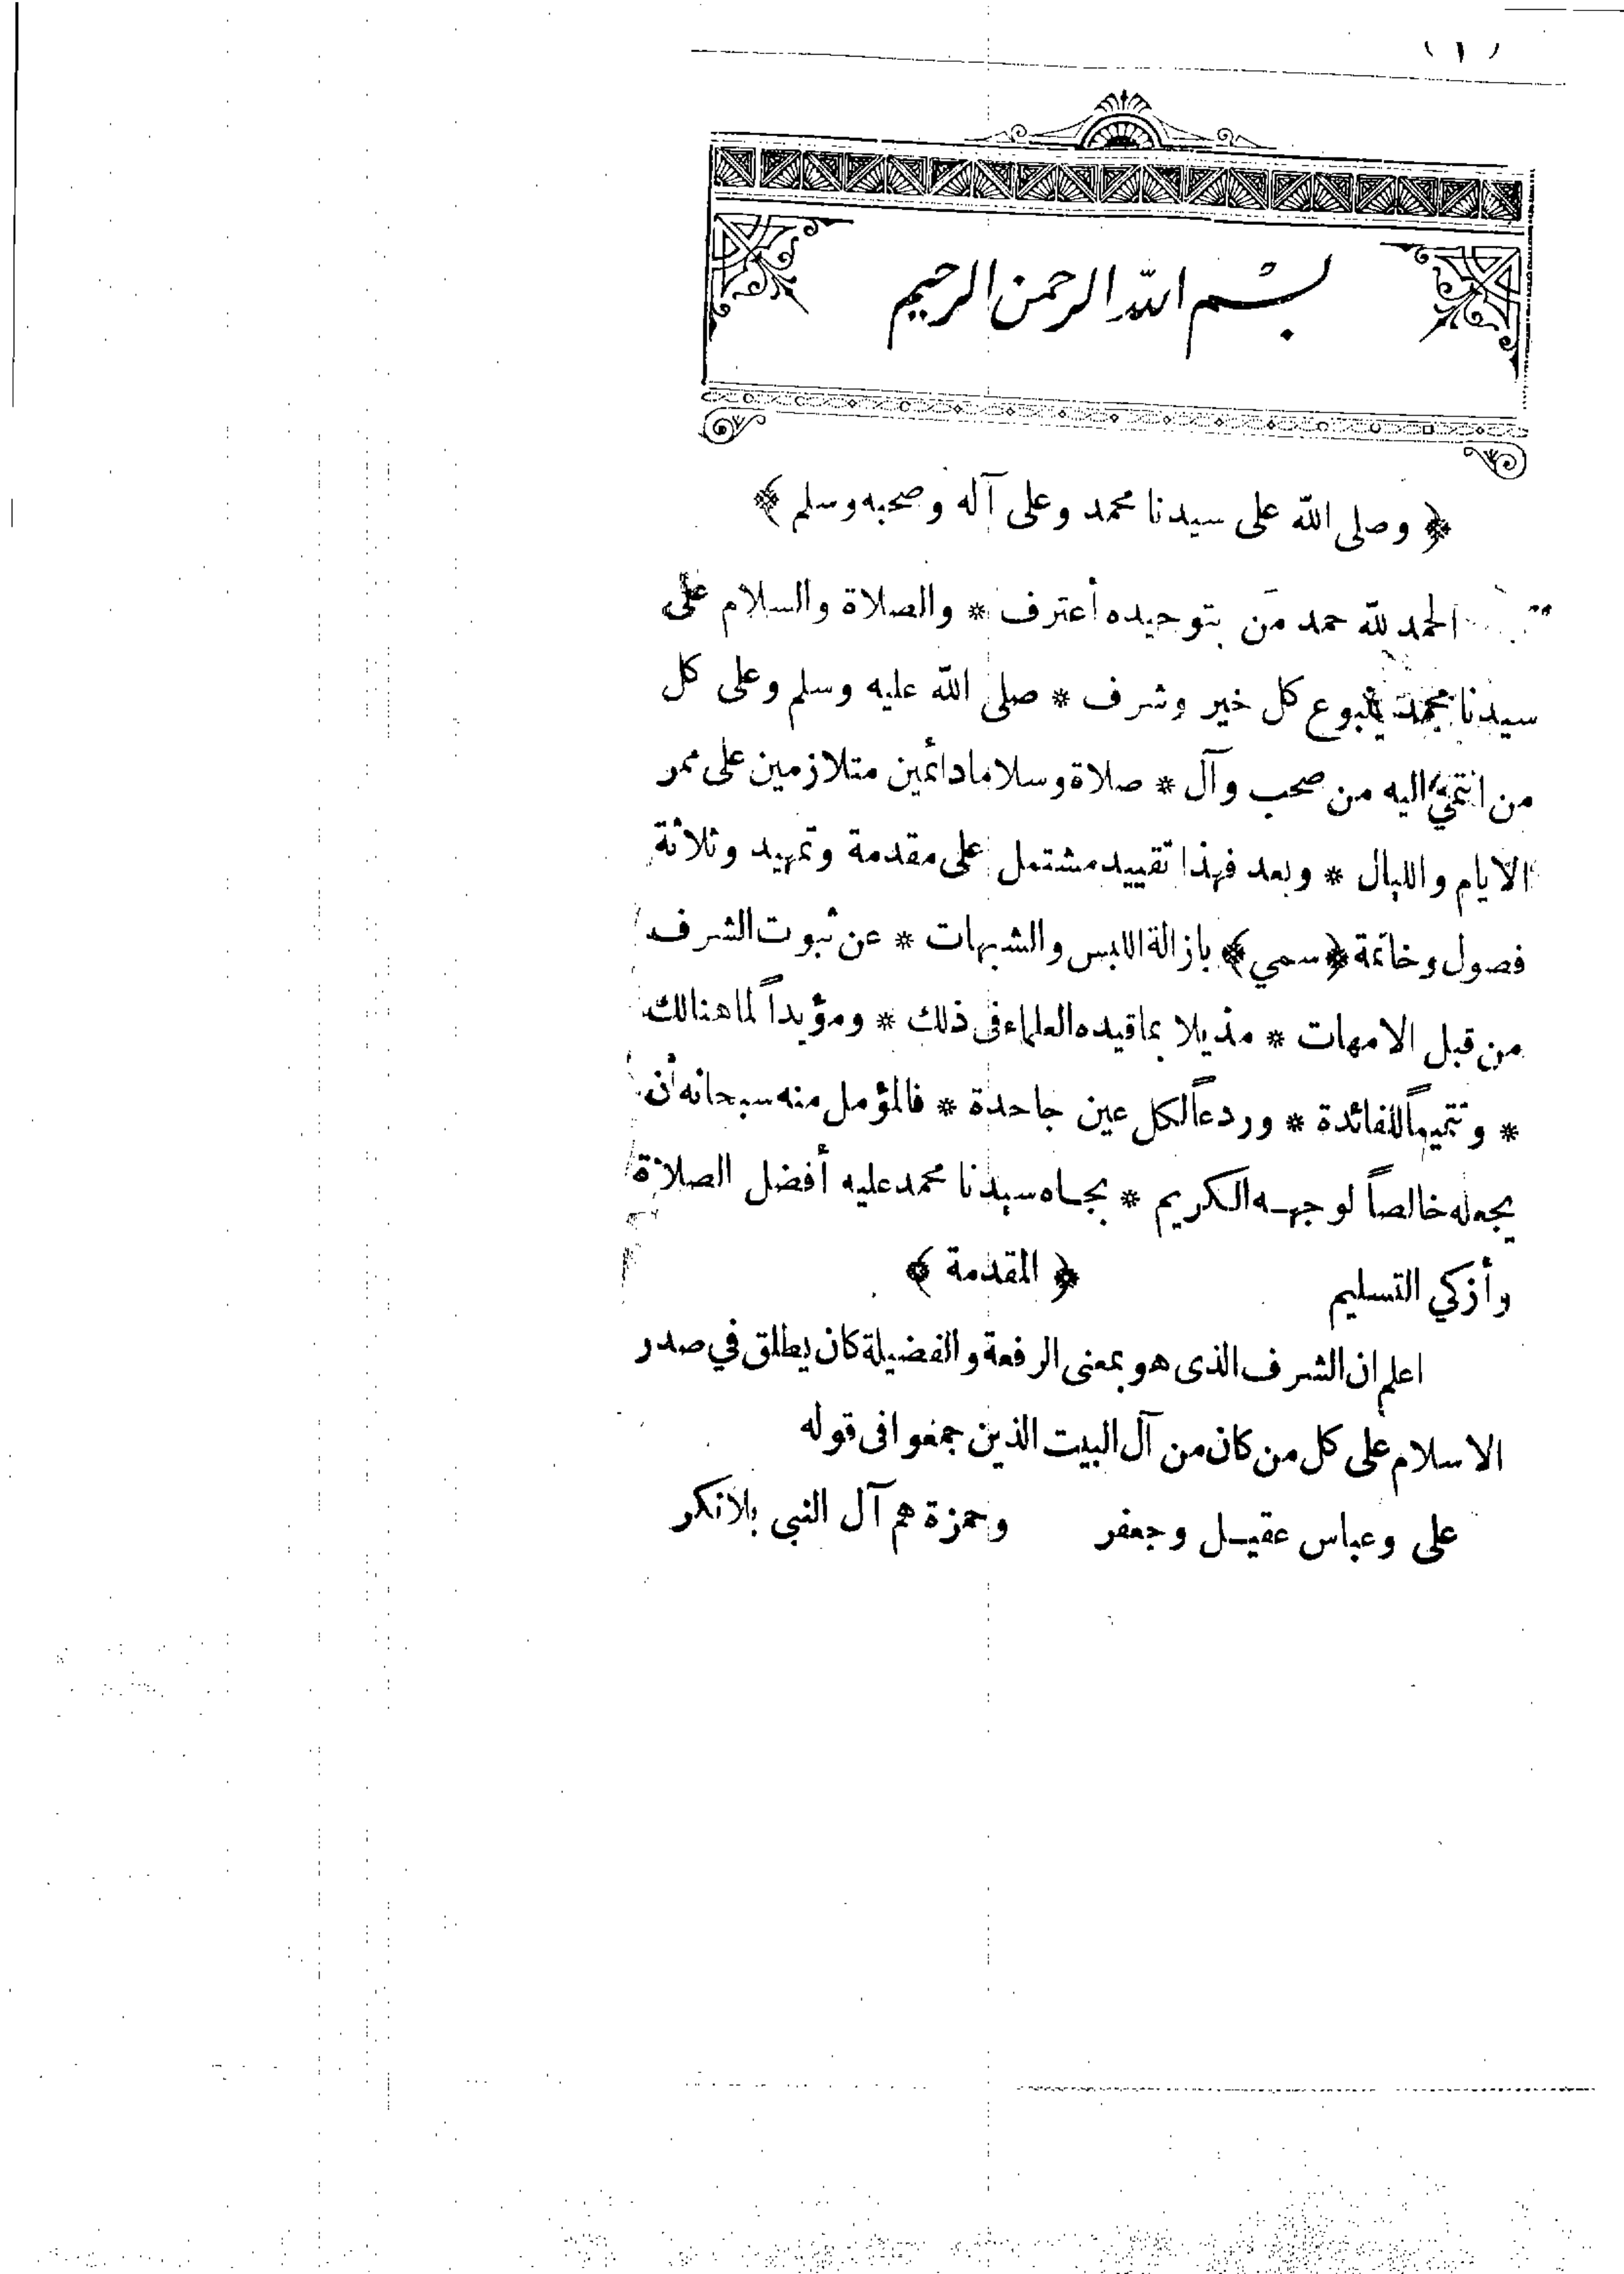 (١)
بسم الله الرحمن الرحيم
﴿ وصلى الله على سيدنا محمد وعلى آله وصحبه وسلم ﴾
الحمد لله حمد مَن بتوحيده أعترف * والصلاة والسلام على
سيدنا محمد ينبوع كل خير وشرف * صلى الله عليه وسلم وعلى كل
من انتمى اليه من صحب وآل * صلاة وسلاما دائمين متلازمين على ممر
الايام والليال * وبعد فهذا تقييد مشتمل على مقدمة وتمهيد وثلاثة
فصول وخاتمة ﴿سمي﴾ بازالة اللبس والشبهات * عن ثبوت الشرف
من قبل الامهات * مذيلا بما قيده العلماء فى ذلك * ومؤيداً لما هنالك
* وتتميماً للفائدة * وردعاً لكل عين جاحدة * فالمؤمل منه سبحانه أن
يجعله خالصاً لوجهه الكريم * بجاه سيدنا محمد عليه أفضل الصلاة
وأزكي التسليم
﴿ المقدمة ﴾
اعلم ان الشرف الذى هو بمعنى الرفعة والفضيلة كان يطلق في صدر
الاسلام على كل من كان من آل البيت الذين جمعوا فى قوله
على وعباس عقيل وجعفر وحمزة هم آل النبى بلا نكر